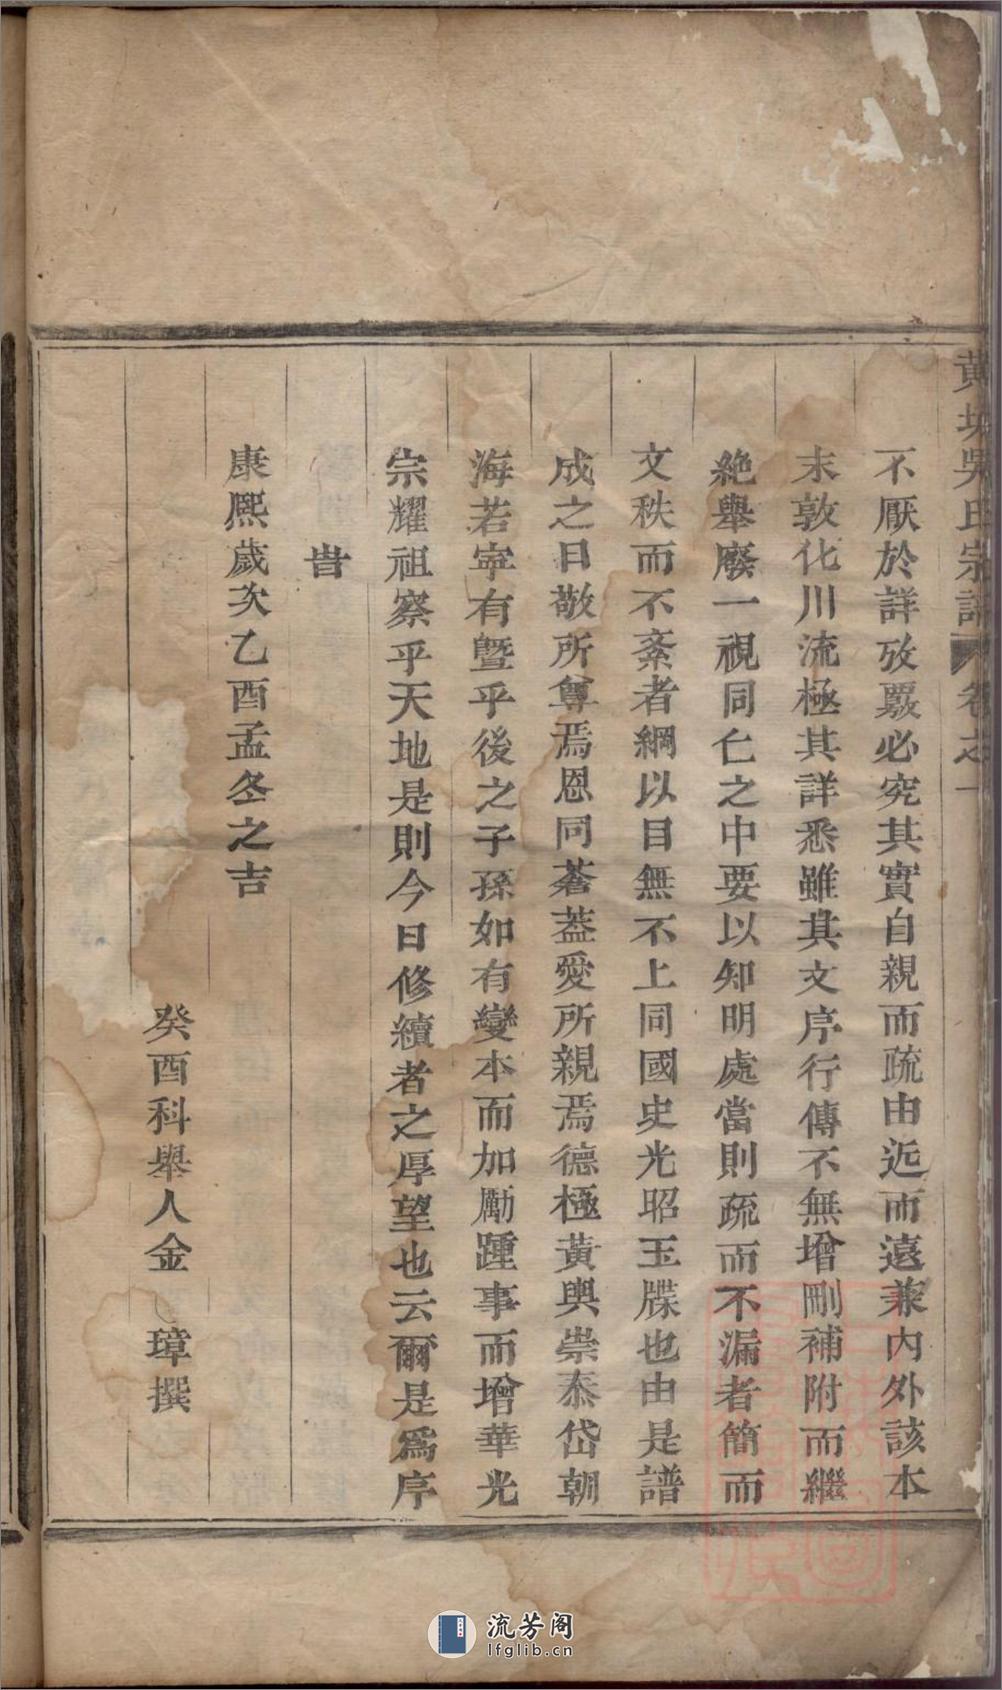 黄坑吳氏宗譜 卷之一
不厭於詳攷覈必究其實自親而疏由近而遠兼內外該本
末敦化川流極其詳悉雖其文序行傳不無增刪補附而繼
絶舉廢一視同仁之中要以知明處當則疏而不漏者簡而
文秩而不紊者綱以目無不上同國史光昭玉牒也由是譜
成之日敬所尊焉恩同蒼蓋愛所親焉德極黃輿崇泰岱朝
海若寧有曁乎後之子孫如有變本而加勵踵事而增華光
宗耀祖察乎天地是則今日修續者之厚望也云爾是爲序
旹
康熙歲次乙酉孟冬之吉
癸酉科舉人金璋撰
流芳阁
lfglib.cn